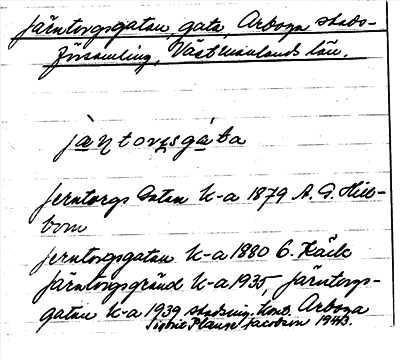 Järntorgsgatan, gata, Arboga stads-
församling, Västmanlands län.
jäṇtorysgáta
Jerntorgs Gatan K-a 1879 A. G. Hell-
bom
Jerntorgsgatan K-a 1880 C. Käck
Järntorgsgränd K-a 1935, Järntorgs-
gatan K-a 1939 stadsing. kont. Arboga
Jacobson 1943.